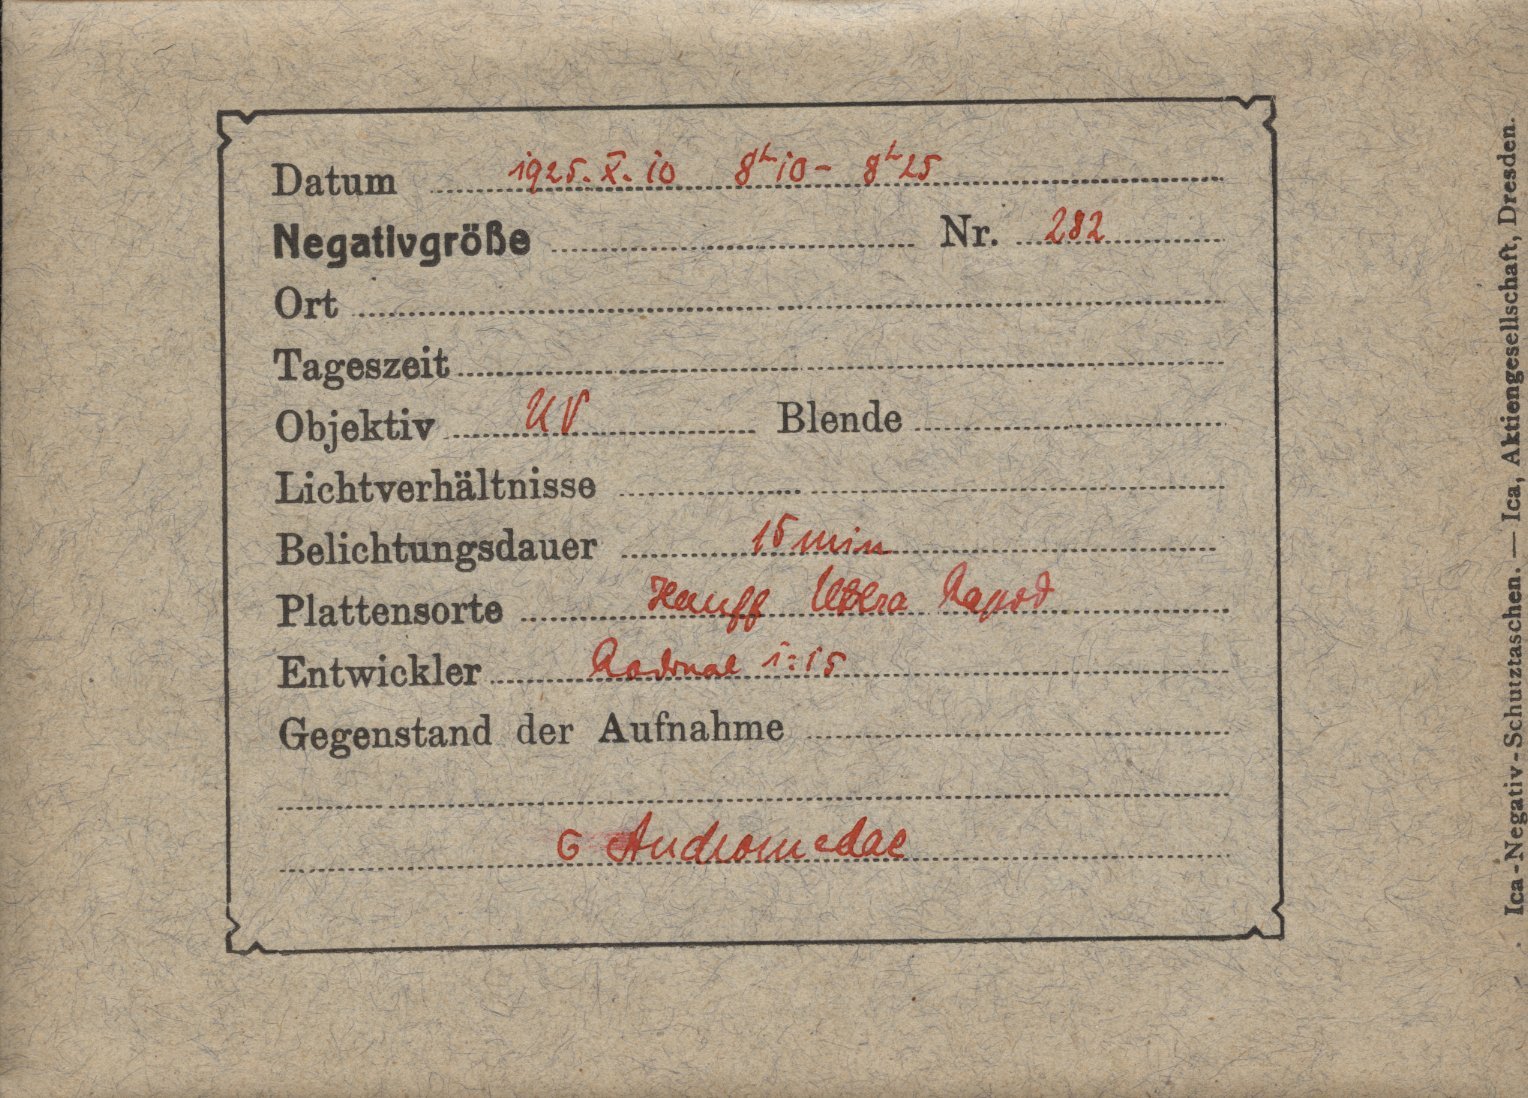 Datum 1925. X. 10 8h10 - 8h25
Negativgröße Nr. 282
Ort
Tageszeit
Objektiv UV Blende
Lichtverhältnisse
Belichtungsdauer 15 min
Plattensorte Hauff Ultra Rapid
Entwickler Rodinal 1:15
Gegenstand der Aufnahme
6 Andromedae
Ica-Negativ-Schutztaschen. — Ica, Aktiengesellschaft, Dresden.